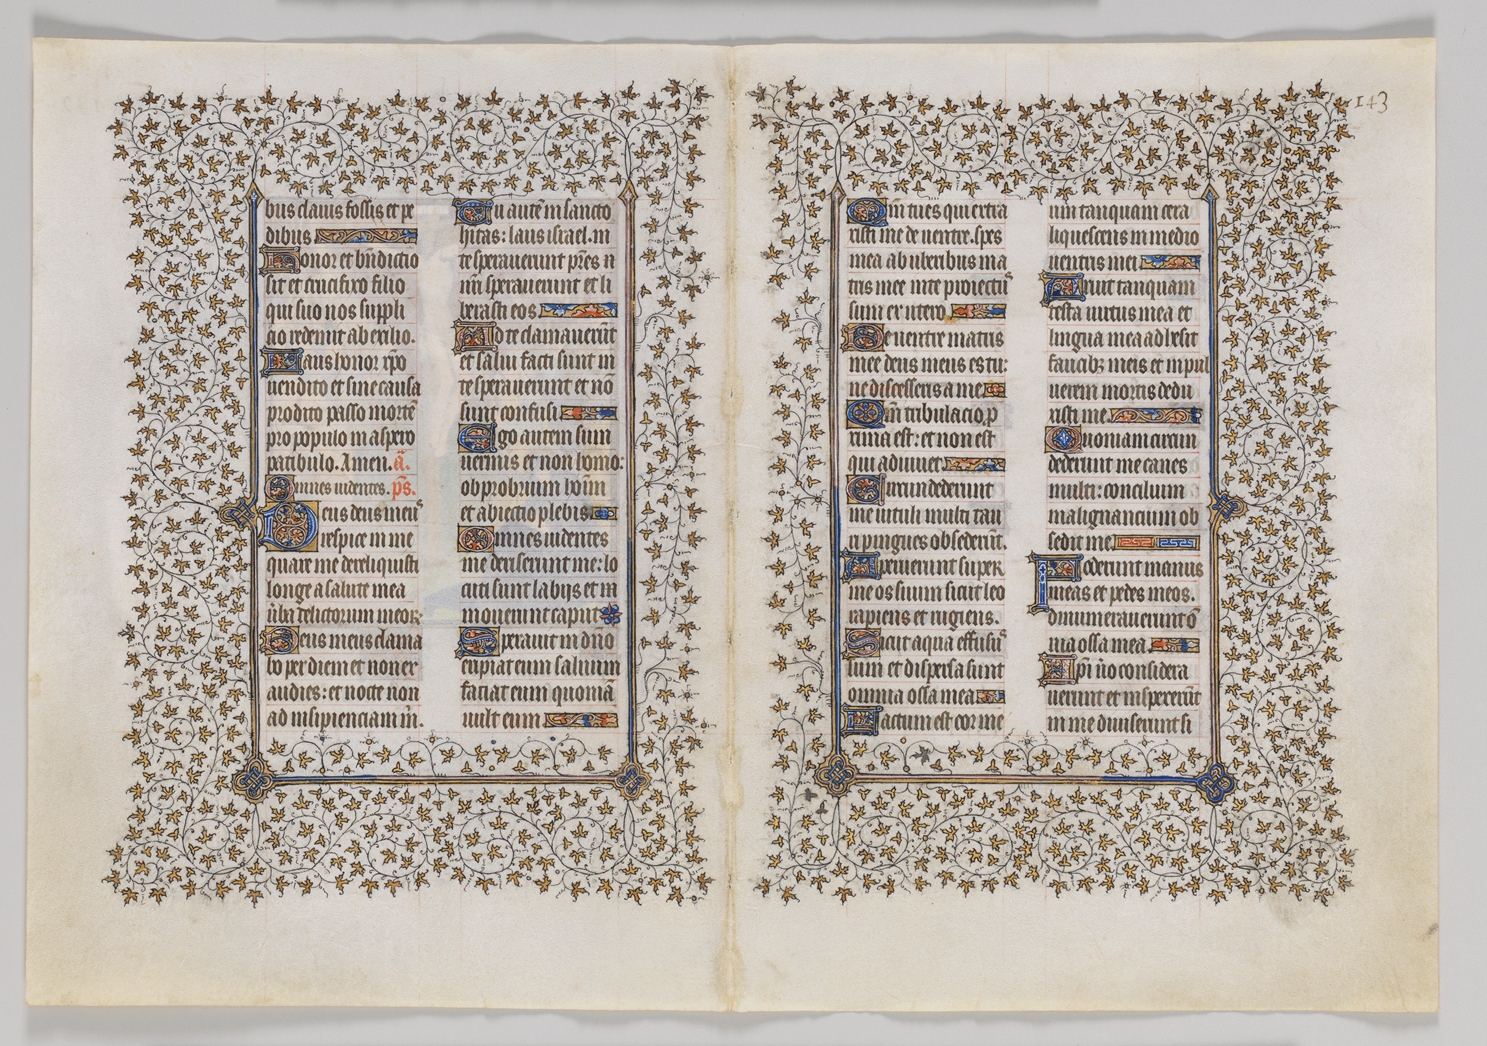 bus clauis fossis et pe
dibus
Honor et bn̄dictio
sit et crucifixo filio
qui suo nos suppli
cio redemit ab exilio.
Laus honor xp̄o
uendito et sine causa
prodito passo morte᷈
pro populo in aspero
patibulo. Amen. a᷈.
Omnes uidentes. ps᷈.
Deus deus meus
respice in me
quare me dereliquisti
longe a salute mea
u̾ba delictorum meor
Deus meus clama
bo per diem et non ex
audies: et nocte non
ad insipienciam m̄.
Tu aute᷈ in sancto
hitas: laus israel. in
te sperauerunt pr̄es n
r̄i sperauerunt et li
berasti eos
Ad te clamauerūt
et salui facti sunt in
te sperauerunt et nō
sunt confusi
Ego autem sum
uermis et non homo:
obprobrium hoīm
et abiectio plebis
Omnes uidentes
me deriserunt me: lo
cuti sunt labijs et m
mouerunt caput
Sperauit in dn̄o
eripiat eum saluum
faciat eum quoniā
uult eum
Qm̄ tu es qui extra
xisti me de uentre. spes
mea ab uberibus ma
tris mee in te proiectus
sum ex utero
De uentre matris
mee deus meus es tu:
ne discesseris a me
Qm̄ tribulacio p
xima est: et non est
qui adiuuet
Circundederunt
me uituli multi tau
ri pingues obsederūt.
Aperuerunt super
me os suum sicut leo
rapiens et rugiens.
Sicut aqua effusus
sum et dispersa sunt
omnia ossa mea
Factum est cor me
um tanquam cera
liquescens in medio
uentris mei
Aruit tanquam
testa uirtus mea et
lingua mea adhesit
faucibȝ meis et in pul
uerem mortis dedu
xisti me
Quoniam circun
dederunt me canes
multi: concilium
malignancium ob
sedit me
Foderunt manus
meas et pedes meos.
dinumerauerunt o᷈
nia ossa mea
Ip̄i u̾o considera
uerunt et inspexerūt
in me diuiserunt si
143